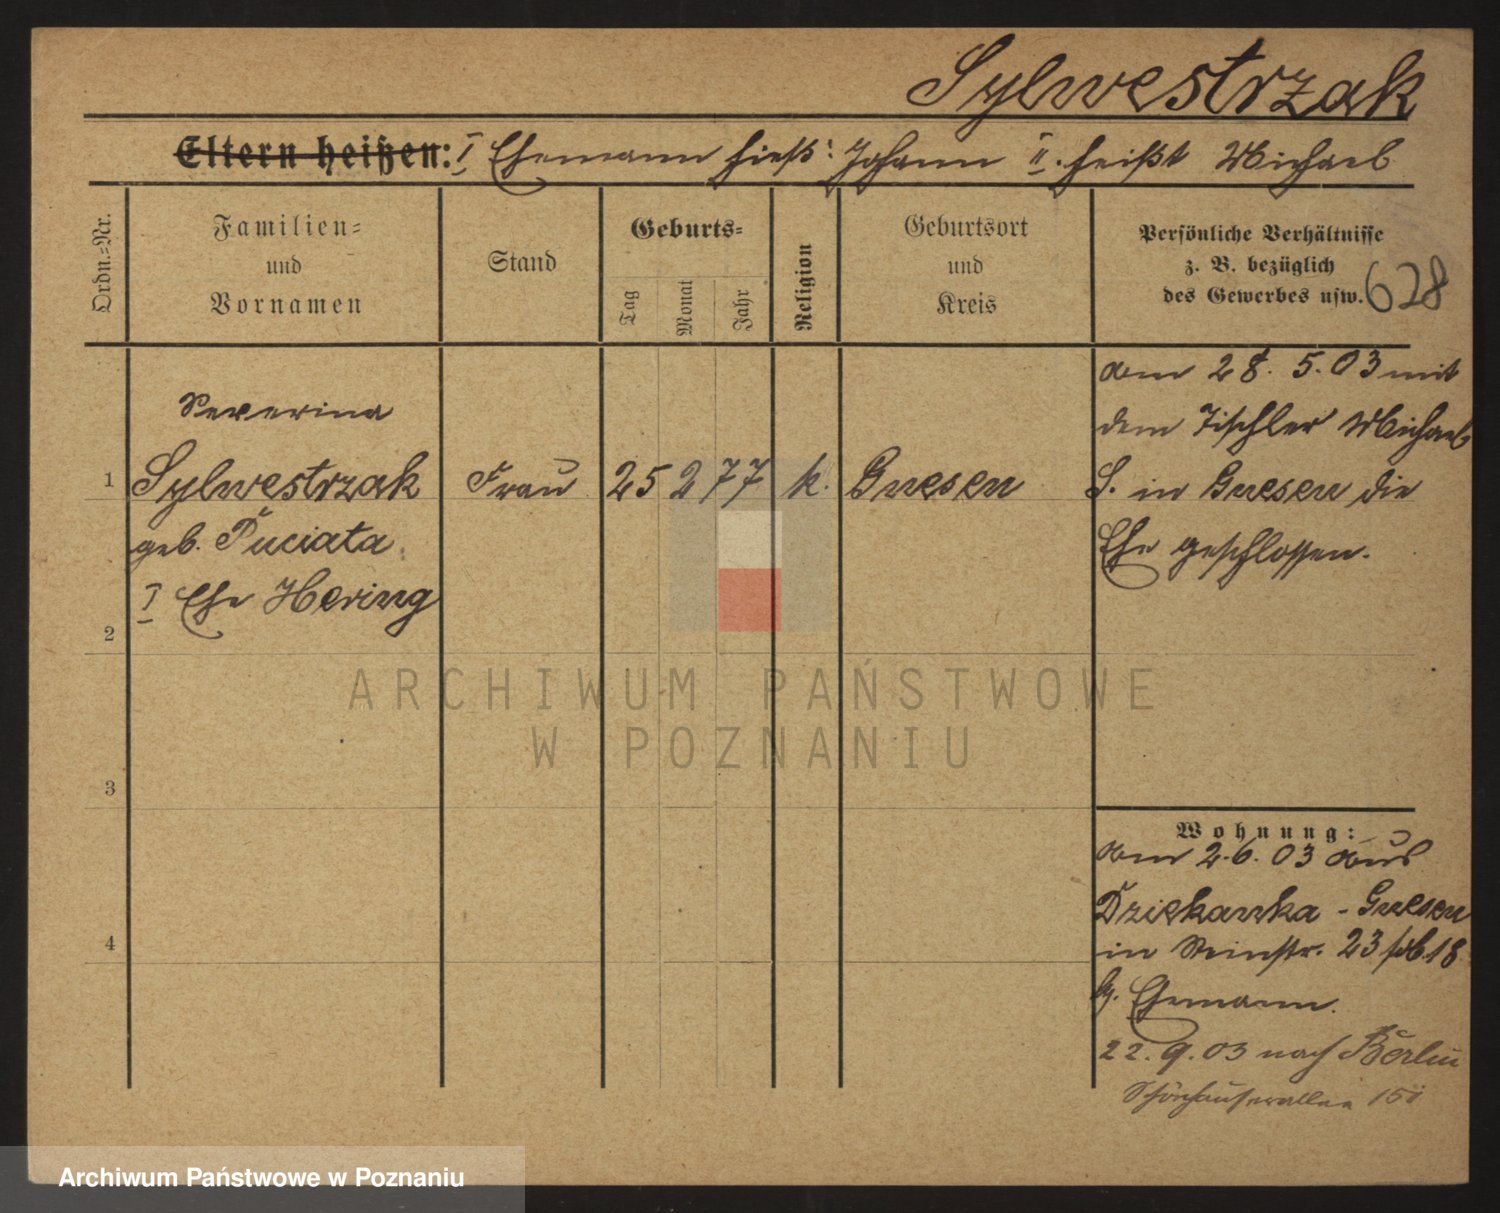 Sylwestrzak
Eltern heißen: I Ehemann hieß: Johann II. heißt Michael
Ordn.-Nr.
Familien-
und
Vornamen
Stand
Geburts-
Tag
Monat
Jahr
Religion
Geburtsort
und
Kreis
Persönliche Verhältnisse
z. B. bezüglich
des Gewerbes usw.
628
1
Severina
Sylwestrzak
geb. Puciata
I Ehe Hering
Frau
25 2 77
k.
Gnesen
am 28. 5. 03 mit
dem Tischler Michael
S. in Gnesen die
Ehe geschlossen.
2
3
4
Wohnung:
am 2. 6. 03 aus
Dziekanka - Gnesen
in 23
Ehemann.
22. 9. 03 nach Berlin
Schönhauserallee
ARCHIWUM PAŃSTWOWE
W POZNANIU
Archiwum Państwowe w Poznaniu